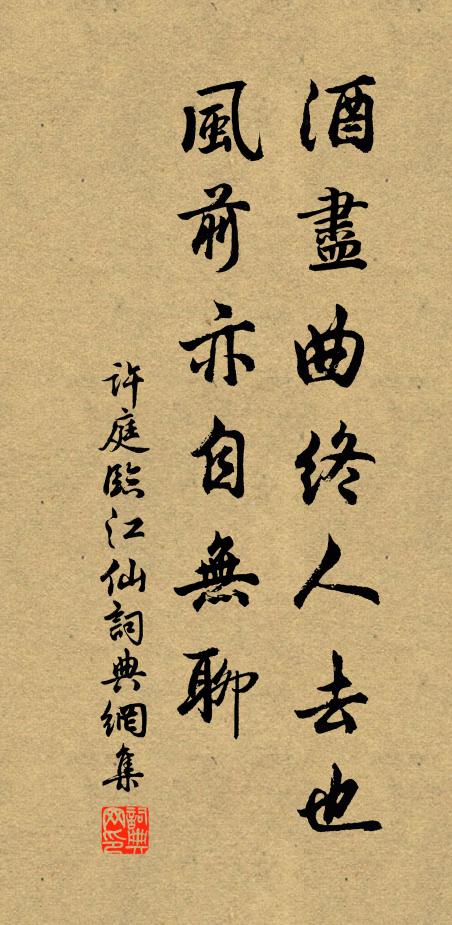 酒盡曲終人去也
風前亦自無聊
許庭臨江仙詞典網集
詞典网印